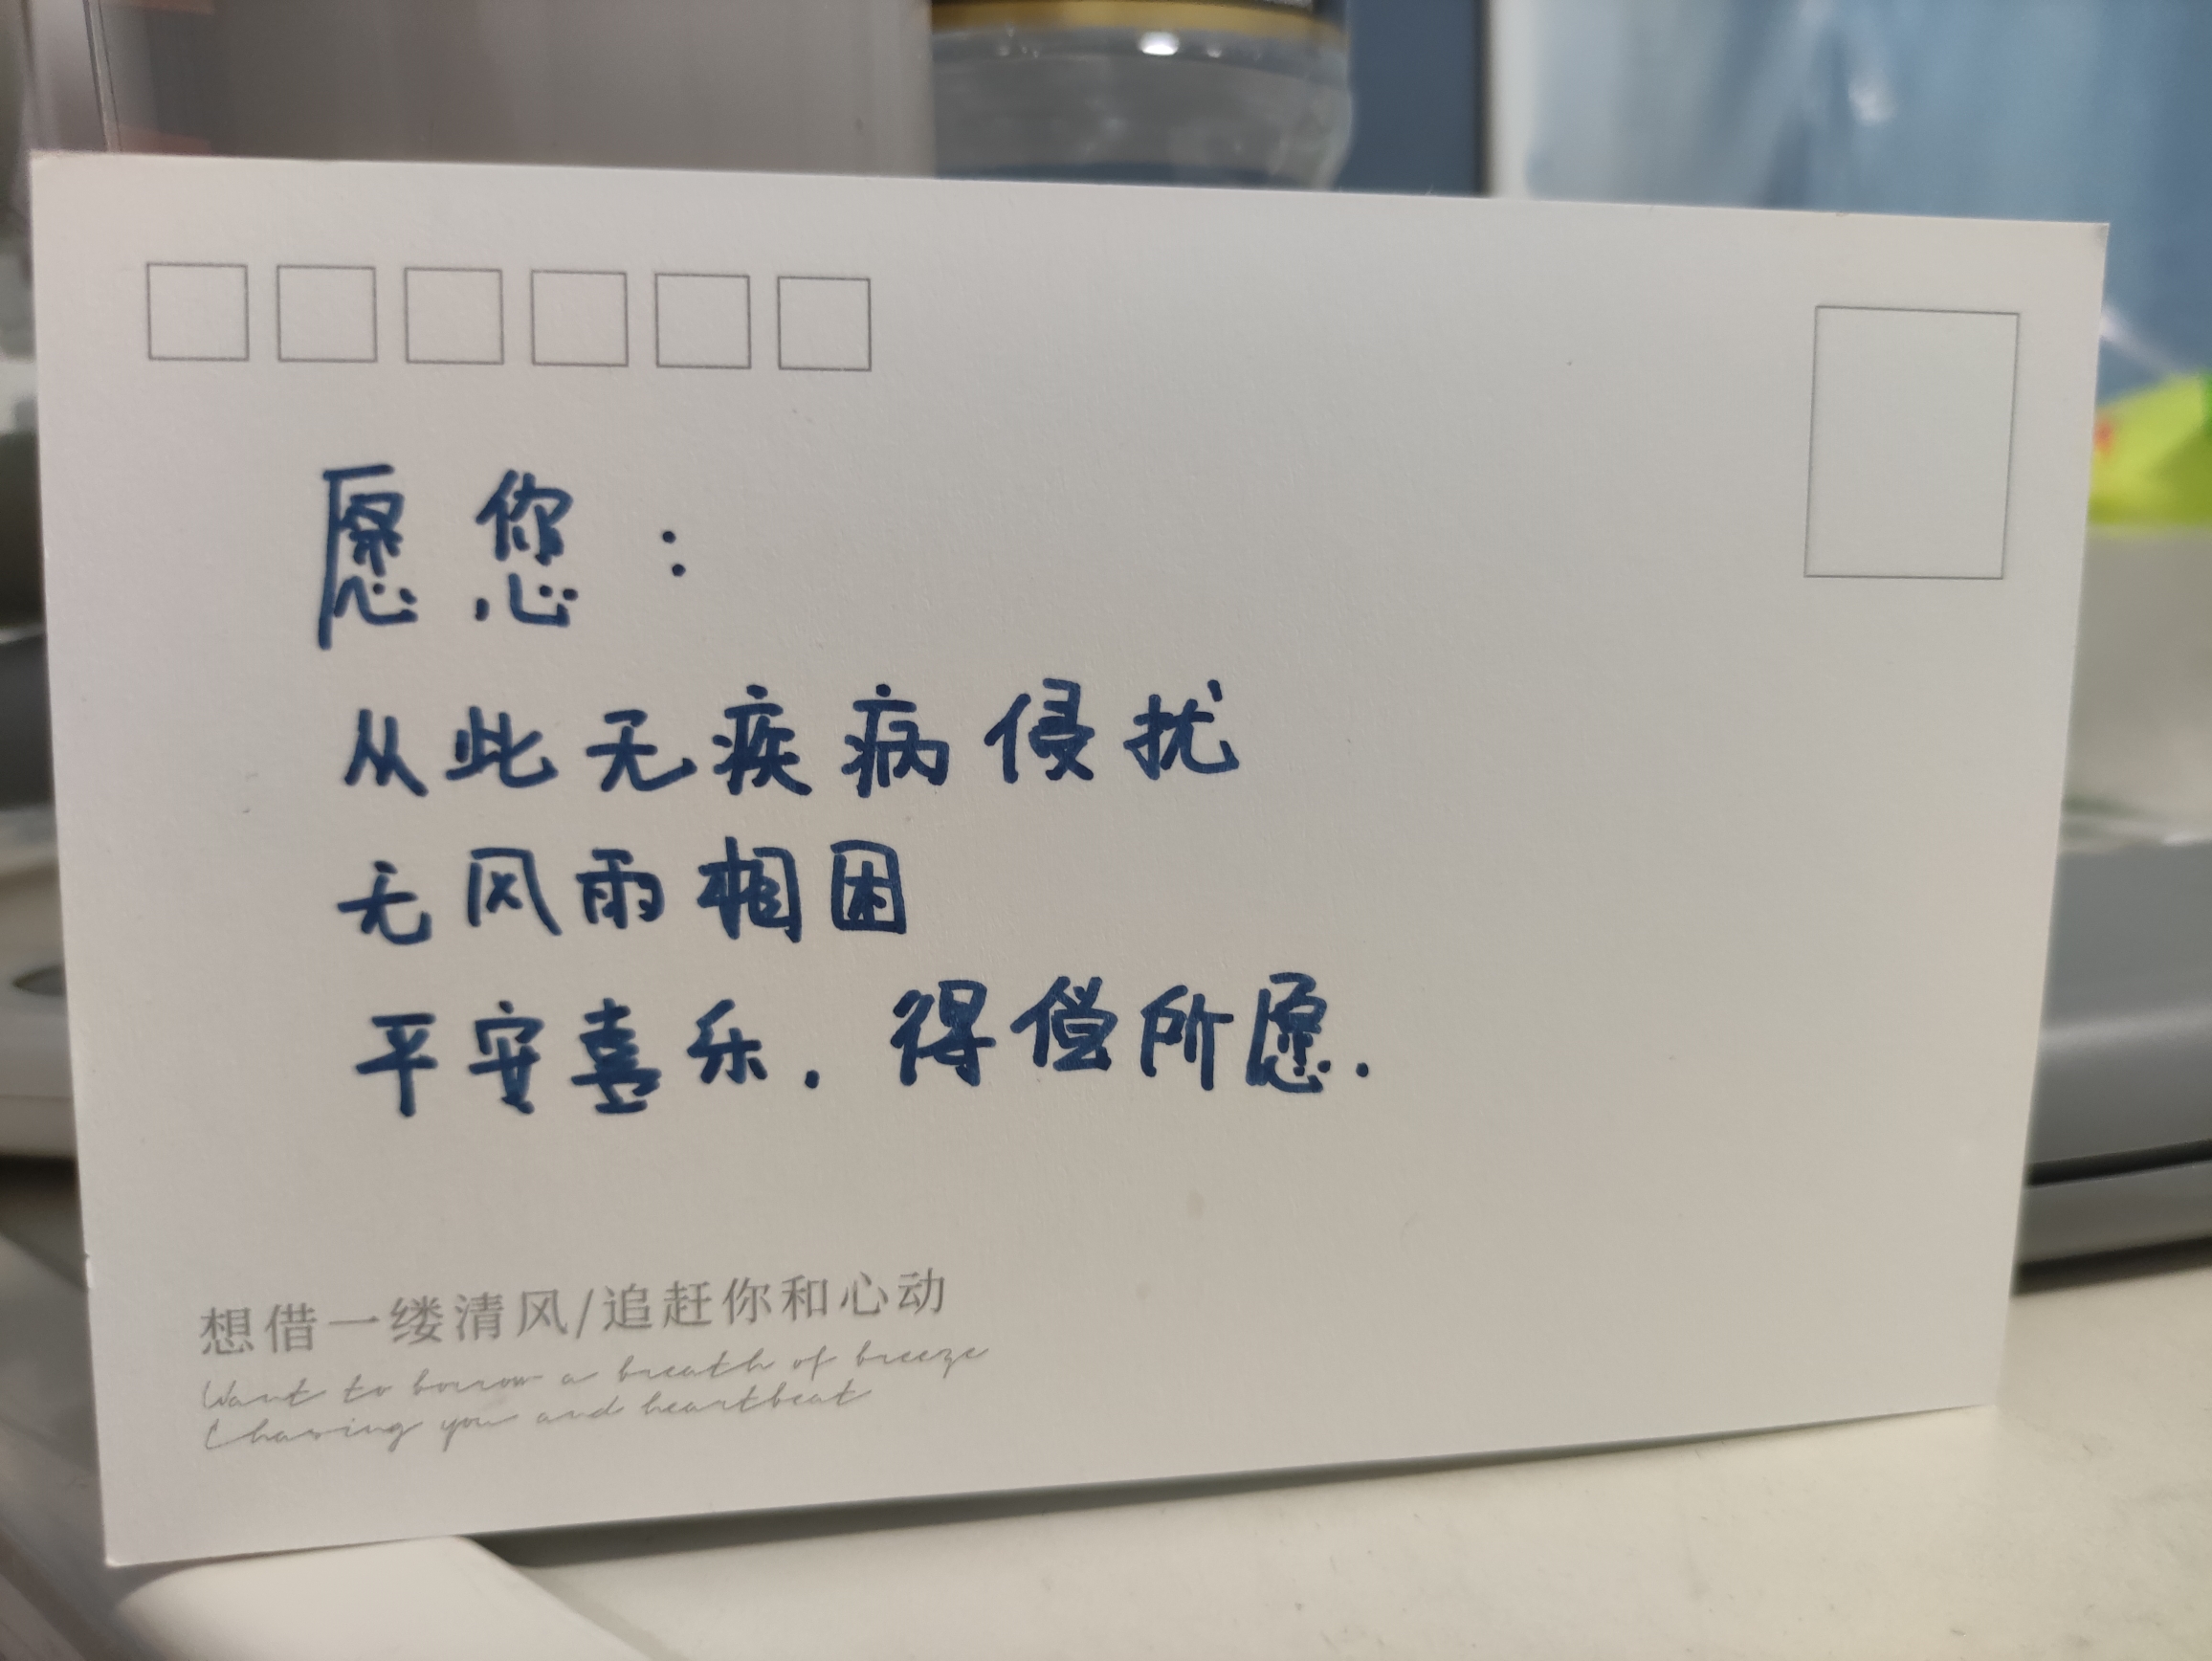 愿您：
从此无疾病侵扰
无风雨相困
平安喜乐．得偿所愿．
想借一缕清风/追赶你和心动
Want to borrow a breath of breeze
Chasing you and heartbeat